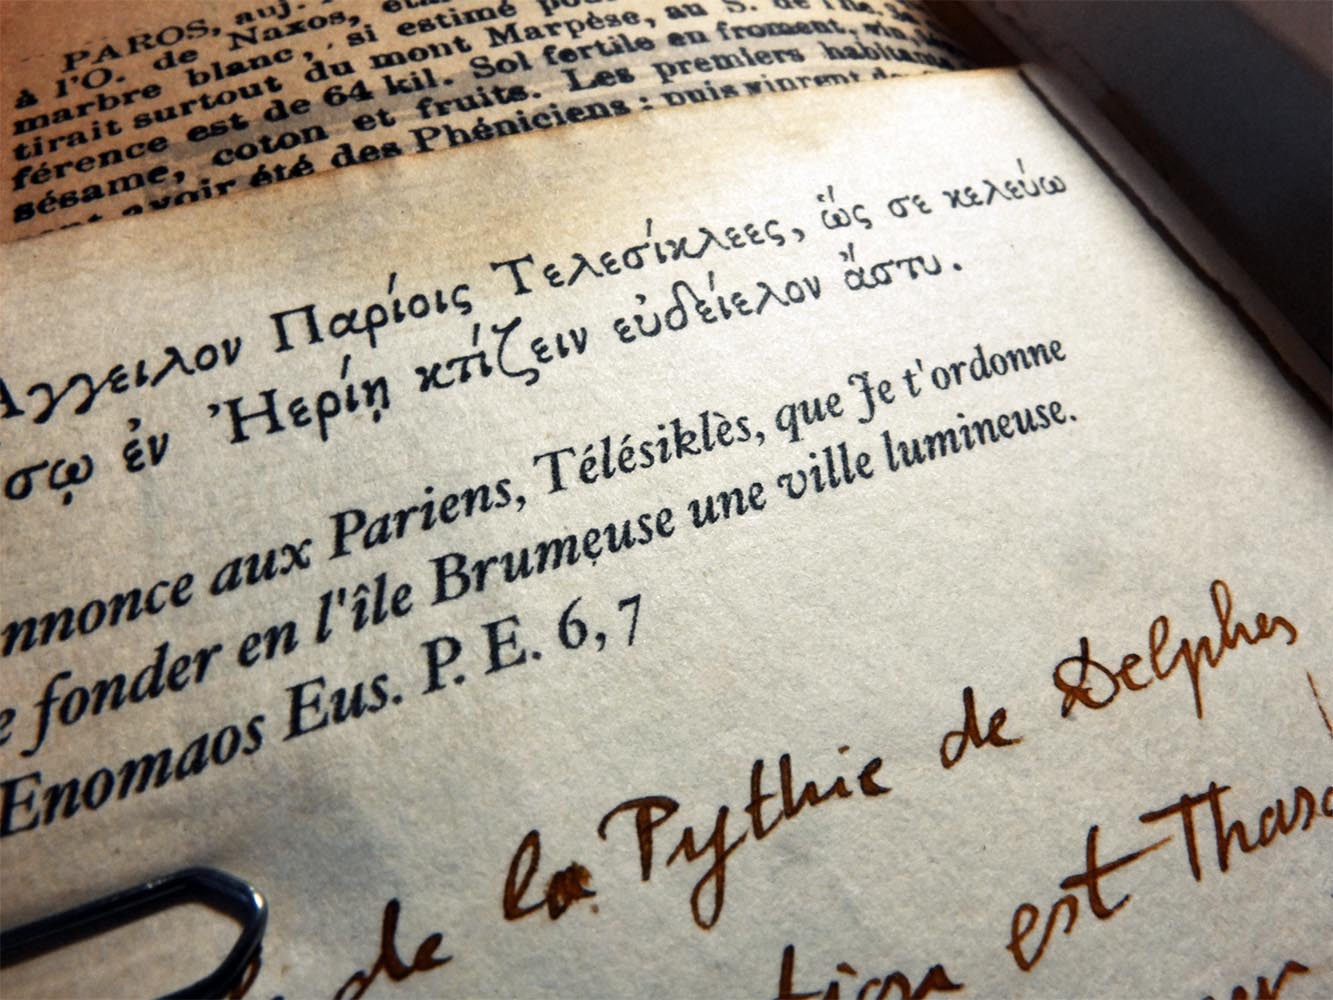 PAROS, auj.
à l'O. de Naxos,
marbre blanc, si estimé
tirait surtout du mont Marpèse, au S. de l'île.
férence est de 64 kil. Sol fertile en froment, vin,
sésame, coton et fruits. Les premiers habitants
avoir été des Phéniciens ; puis vinrent
Αγγειλον Παρίοις Τελεσίκλεες, ὥς σε κελεύω
σῳ ἐν Ἠερίῃ κτίζειν εὐδείελον ἄστυ.
nnonce aux Pariens, Télésiklès, que Je t'ordonne
e fonder en l'île Brumeuse une ville lumineuse.
Enomaos Eus. P. E. 6, 7
de la Pythie de Delphes
tion est Thaso